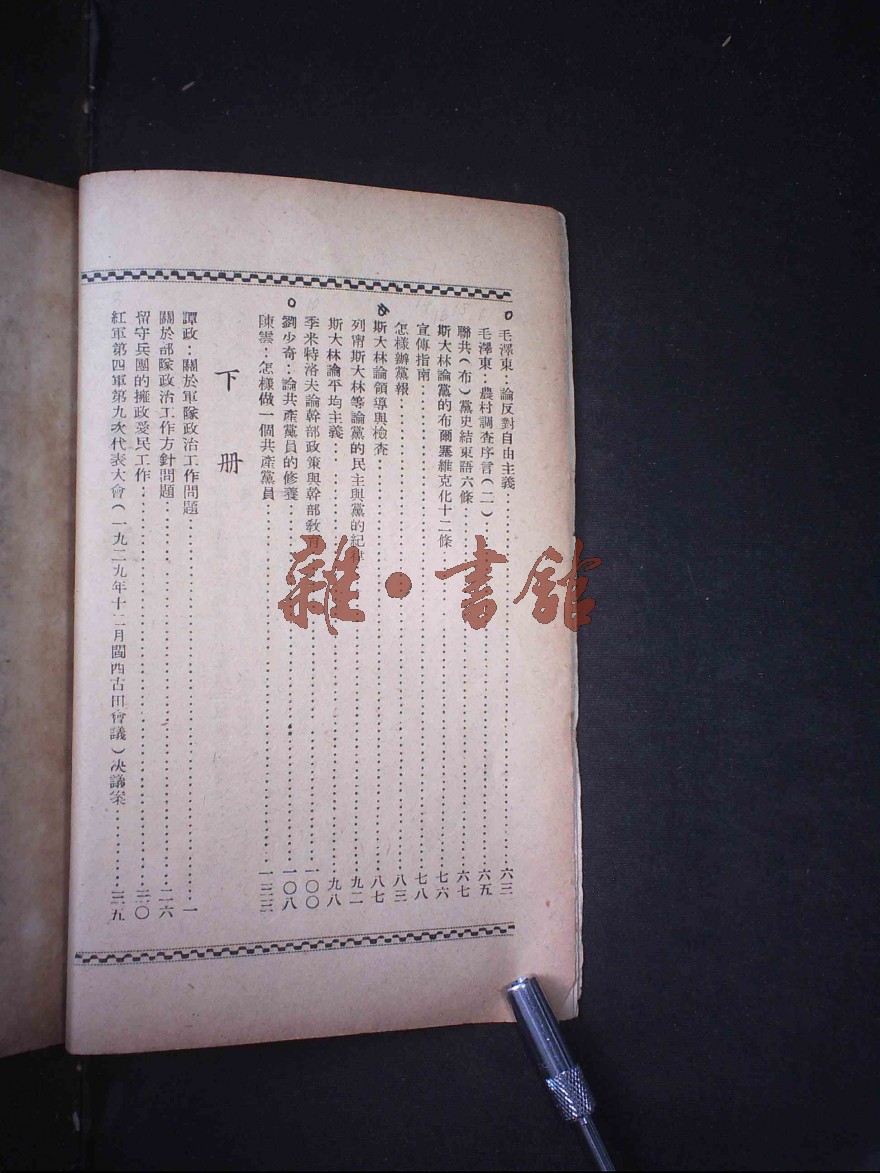 毛澤東：論反對自由主義……六三
毛澤東：農村調查序言（二）……六五
聯共（布）黨史結束語六條……六七
斯大林論黨的布爾塞維克化十二條……七六
宣傳指南……七八
怎樣辦黨報……八三
斯大林論領導與檢查……八七
列甯斯大林等論黨的民主與黨的紀律……九二
斯大林論平均主義……九八
季米特洛夫論幹部政策與幹部教育……一〇〇
劉少奇：論共產黨員的修養……一〇八
陳雲：怎樣做一個共產黨員……一三三
下册
譚政：關於軍隊政治工作問題……一
關於部隊政治工作方針問題……二六
留守兵團的擁政愛民工作……三〇
紅軍第四軍第九次代表大會（一九二九年十二月閩西古田會議）决議案……三五
雜·書館